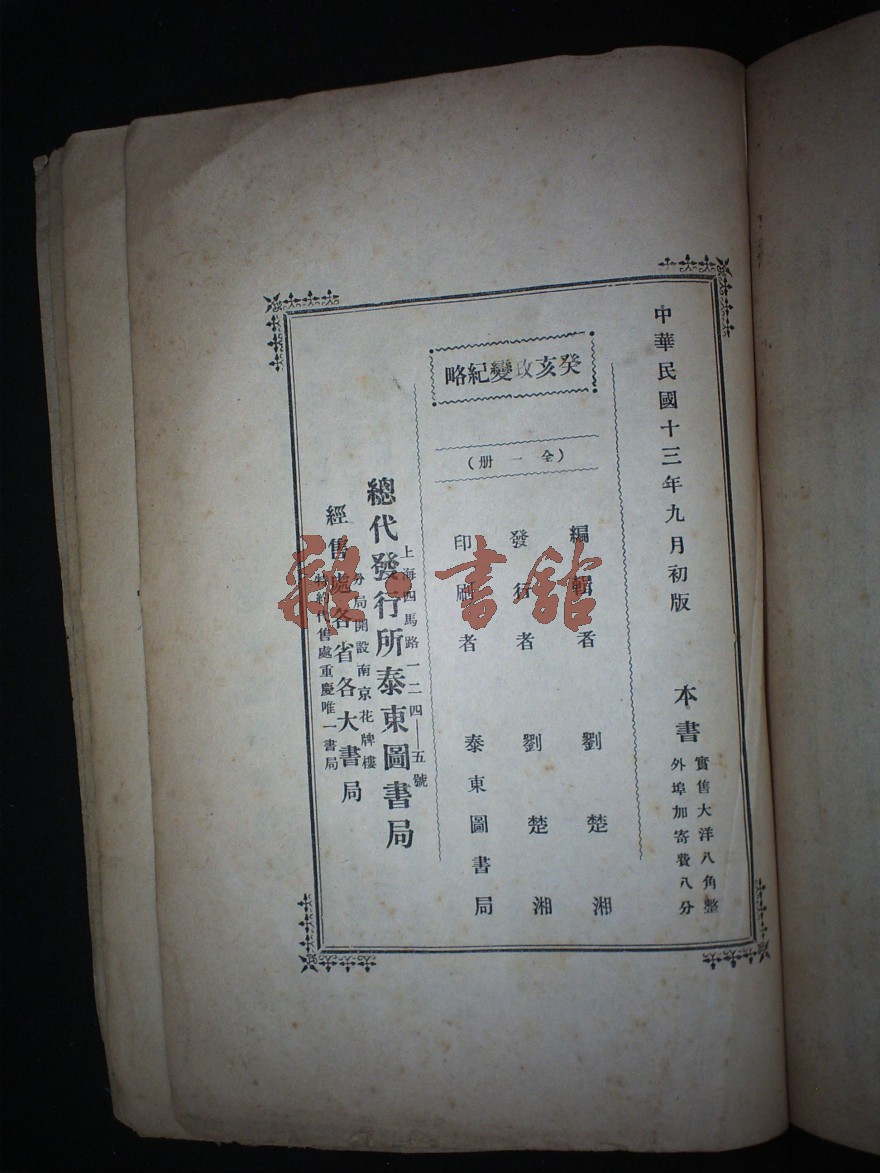 中華民國十三年九月初版
本書
實售大洋八角整
外埠加寄費八分
癸亥政變紀略
（全一册）
編輯者 劉楚湘
發行者 劉楚湘
印刷者 泰東圖書局
上海四馬路一二四—五號
總代發行所泰東圖書局
分局開設南京花牌樓
經售處各省各大書局
特約代售處重慶唯一書局
雜·書館